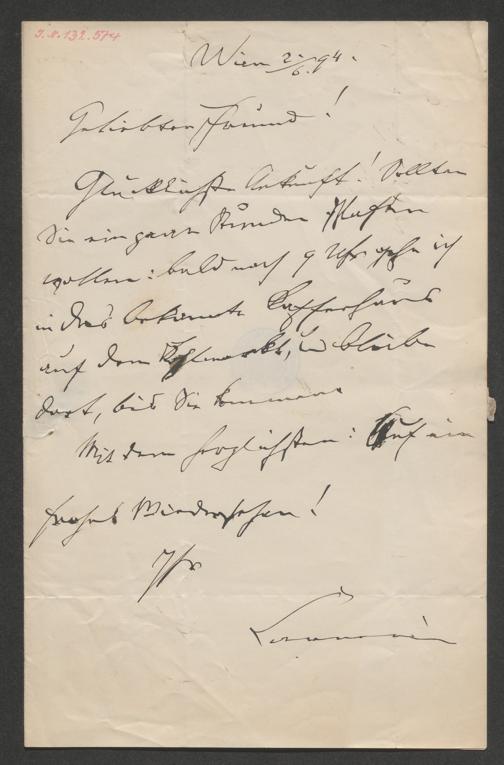 I.N. 132.574
Wien 2./6. 94.
Geliebter Freund!
Glücklichste Ankunft! Sollten
Sie ein paar Stunden
wollen: bald nach 9 Uhr gehe ich
in das bekannte Kaffeehaus
auf dem Kohlmarkt, u bleibe
dort, bis Sie kommen.
Mit dem herzlichsten: Auf ein
frohes Wiedersehen!
Ihr